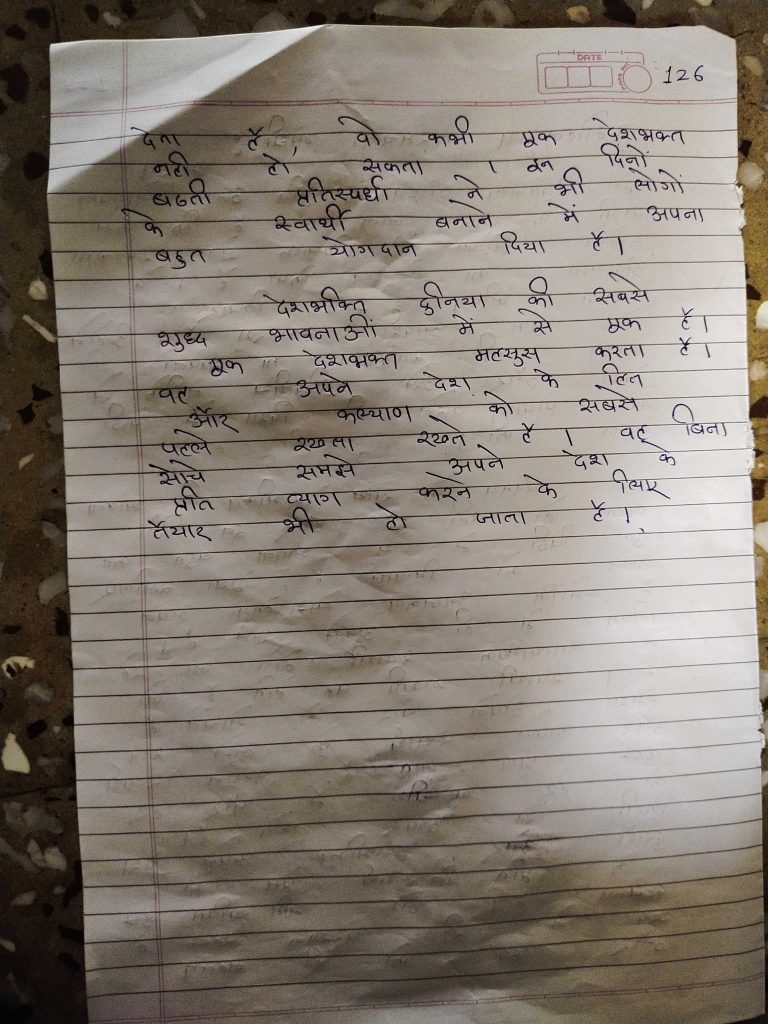 DATE
126
देता है, वो कभी एक देशभक्त
नही हो सकता । इन दिनों
बढती प्रतिस्पर्धा ने भी लोगों
के स्वार्थी बनाने में अपना
बहुत योगदान दिया है।
देशभक्ति दुनिया की सबसे
शुध्द भावनाओं में से एक है।
एक देशभक्त महसुस करता है।
वह अपने देश के हित
और कल्याण को सबसे
पहले रखता रखते है । वह बिना
सोचे समझे अपने देश के
प्रति त्याग करने के लिए
तैयार भी हो जाता है।